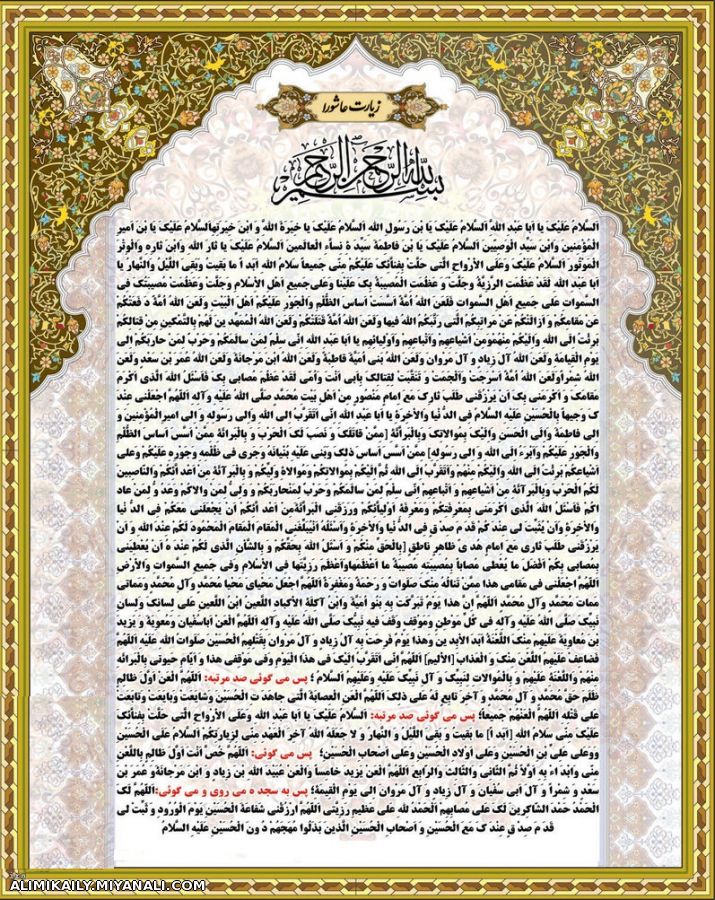 زیارت عاشورا
بسم الله الرحمن الرحیم
اَلسَّلامُ عَلَیْکَ یا اَبا عَبْدِ اللهِ اَلسَّلامُ عَلَیْکَ یَا بْنَ رَسُولِ اللهِ اَلسَّلامُ عَلَیْکَ یا خِیَرَةَ اللهِ وَ ابْنَ خِیَرَتِهِاَلسَّلامُ عَلَیْکَ یَا بْنَ اَمیرِ
الْمُؤْمِنینَ وَابْنَ سَیِّدِ الْوَصِیّینَ اَلسَّلامُ عَلَیْکَ یَا بْنَ فاطِمَةَ سَیِّدَ ةِ نِساءِ الْعالَمینَ اَلسَّلامُ عَلَیْکَ یا ثارَ اللهِ وَابْنَ ثارِهِ وَالْوِتْرَ
الْمَوْتُورَ اَلسَّلامُ عَلَیْکَ وَعَلَى الأَرْواحِ الَّتی حَلَّتْ بِفِنائِکَ عَلَیْکُمْ مِنّی جَمیعاً سَلامُ اللهِ اَبَدَ اً ما بَقیتُ وَبَقِیَ اللَّیْلُ وَالنَّهارُ یا
اَبا عَبْدِ اللهِ لَقَدْ عَظُمَتِ الرَّزِیَّةُ وَجَلَّتْ وَ عَظُمَتِ الْمُصیبَةُ بِکَ عَلَیْنا وَعَلى جَمیعِ اَهْلِ الأِسْلامِ وَجَلَّتْ وَعَظُمَتْ مُصیبَتُکَ فِی
السَّمواتِ عَلى جَمیعِ اَهْلِ السَّمواتِ فَلَعَنَ اللهُ اُمَّةً اَسَّسَتْ اَساسَ الظُّلْمِ وَالْجَوْرِ عَلَیْکُمْ اَهْلَ الْبَیْتِ وَلَعَنَ اللهُ اُمَّةً دَ فَعَتْکُمْ
عَنْ مَقامِکُمْ وَ اَزالَتْکُمْ عَنْ مَراتِبِکُمُ الَّتی رَتَّبَکُمُ اللهُ فیها وَلَعَنَ اللهُ اُمَّةً قَتَلَتْکُمْ وَلَعَنَ اللهُ الْمُمَهِّدینَ لَهُمْ بِالتَّمْکینِ مِنْ قِتالِکُمْ
بَرِئْتُ اِلَى اللهِ وَاِلَیْکُمْ مِنْهُمْ وَمِنْ اَشْیاعِهِمْ وَاَتْباعِهِمْ وَاَوْلِیائِهِمْ یا اَبا عَبْدِ اللهِ اِنّی سِلْمٌ لِمَنْ سالَمَکُمْ وَحَرْبٌ لِمَنْ حارَبَکُمْ اِلى
یَوْمِ الْقِیامَةِ وَلَعَنَ اللهُ آلَ زِیادٍ وَ آلَ مَرْوانَ وَلَعَنَ اللهُ بَنی اُمَیَّةَ قاطِبَةً وَلَعَنَ اللهُ ابْنَ مَرْجانَةَ وَلَعَنَ اللهُ عُمَرَ بْنَ سَعْدٍ وَلَعَنَ
اللهُ شِمْراًوَلَعَنَ اللهُ اُمَّةً اَسْرَجَتْ وَاَلْجَمَتْ وَ تَنَقَّبَتْ لِقِتالِکَ بِاَبی اَنْتَ وَاُمّی لَقَدْ عَظُمَ مُصابی بِکَ فَاَسْئَلُ اللهَ الَّذی اَکْرَمَ
مَقامَکَ وَ اَکْرَمَنی بِکَ اَنْ یَرْزُقَنی طَلَبَ ثارِکَ مَعَ اِمامٍ مَنْصُورٍ مِنْ اَهْلِ بَیْتِ مُحَمَّدٍ صَلَّى اللهُ عَلَیْهِ وَآلِهِ اَللّهُمَّ اجْعَلْنی عِنْدَ
کَ وَجیهاً بِالْحُسَیْنِ عَلَیْهِ السَّلامُ فِی الدُّ نْیا وَالأخِرَةِ یا اَبا عَبْدِ اللهِ اِنّی اَتَقَرَّبُ اِلَى اللهِ وَاِلى رَسُولِهِ وَ اِلى امیرِالْمُؤْمِنینَ وَ
اِلى فاطِمَةَ وَاِلَى الْحَسَنِ وَاِلَیْکَ بِمُوالاتِکَ وَبِالْبَرائَةِ [ مِمَّنْ قاتَلَکَ وَ نَصَبَ لَکَ الْحَرْبَ وَ بِالْبَرائَةِ مِمَّنْ اَسَّسَ اَساسَ الظُّلْمِ
وَالْجَوْرِ عَلَیْکُمْ وَاَبْرَءُ اِلَى اللهِ وَ اِلى رَسُولِهِ] مِمَّنْ اَسَّسَ اَساسَ ذلِکَ وَبَنى عَلَیْهِ بُنْیانَهُ وَجَرى فی ظُلْمِهِ وَجَوْرِهِ عَلَیْکُمْ وَعَلى
اَشْیاعِکُمْ بَرِئْتُ اِلَى اللهِ وَاِلَیْکُمْ مِنْهُمْ وَاَتَقَرَّبُ اِلَى اللهِ ثُمَّ اِلَیْکُمْ بِمُوالاتِکُمْ وَمُوالاةِ وَلِیِّکُمْ وَ بِالْبَرآئَةِ مِنْ اَعْد آئِکُمْ وَالنّاصِبینَ
لَکُمُ الْحَرْبَ وَبِالْبَرآئَةِ مِنْ اَشْیاعِهِمْ وَ اَتْباعِهِمْ اِنّی سِلْمٌ لِمَنْ سالَمَکُمْ وَحَرْبٌ لِمَنْحارَبَکُمْ وَ وَلِیٌّ لِمَنْ والاکُمْ وَعَدُ وٌّ لِمَنْ عاد
اکُمْ فَاَسْئَلُ اللهَ الَّذی اَکْرَمَنی بِمَعْرِفَتِکُمْ وَمَعْرِفَةِ اَوْلِیآئِکُمْ وَرَزَقَنِی الْبَرائَةَمِنْ اَعْد آئِکُمْ اَنْ یَجْعَلَنی مَعَکُمْ فِی الدُّ نْیا
وَالأخِرَةِ وَاَنْ یُثَبِّتَ لی عِنْدَ کُمْ قَدَ مَ صِدْ قٍ فِی الدُّ نْیا وَالأخِرَةِ وَاَسْئَلُهُ اَنْیُبَلِّغَنِی الْمَقامَ الْمَقامَ الْمَحْمُودَ لَکُمْ عِنْدَ اللهِ وَ اَنْ
یَرْزُقَنی طَلَبَ ثاری مَعَ اِمامٍ هُدىً ظاهِرٍ ناطِقٍ [بِالْحَقِّ مِنْکُمْ وَ اَسْئَلُ اللهَ بِحَقِّکُمْ وَ بِالشَّاْنِ الَّذی لَکُمْ عِنْدَ هُ اَنْ یُعْطِیَنی
بِمُصابی بِکُمْ اَفْضَلَ ما یُعْطی مُصاباً بِمُصیبَتِهِ مُصیبَةً ما اَعْظَمَهاوَاَعْظَمَ رَزِیَّتَها فِی الأِسْلامِ وَفی جَمیعِ السَّمواتِ وَالأرْضِ
اَللّهُمَّ اجْعَلْنی فی مَقامی هذا مِمَّنْ تَنالُهُ مِنْکَ صَلَواتٌ وَ رَحْمَةٌ وَمَغْفِرَةٌ اَللّهُمَّ اجْعَلْ مَحْیایَ مَحْیا مُحَمَّدٍ وَآلِ مُحَمَّدٍ وَمَماتی
مَماتَ مُحَمَّدٍ وَآلِ مُحَمَّدٍ اَللّهُمَّ اِنَّ هذا یَوْمٌ تَبَرَّکَتْ بِهِ بَنُو اُمَیَّةَ وَابْنُ آکِلَةِ الأکْبادِ اللَّعینُ ابْنُ اللَّعینِ عَلى لِسانِکَ وَلِسانِ
نَبِیِّکَ صَلَّى اللهُ عَلَیْهِ وَآلِهِ فی کُلِّ مَوْطِنٍ وَمَوْقِفٍ وَقَفَ فیهِ نَبِیُّکَ صَلَّى اللهُ عَلَیْهِ وَآلِهِ اَللّهُمَّ الْعَنْ اَباسُفْیانَ وَمُعوِیَةَ وَ یَزیدَ
بْنَ مُعاوِیَةَ عَلَیْهِمْ مِنْکَ اللَّعْنَةُ اَبَدَ الأبِدینَ وَهذا یَوْمٌ فَرِحَتْ بِهِ آلُ زِیادٍ وَ آلُ مَرْوانَ بِقَتْلِهِمُ الْحُسَیْنَ صَلَواتُ اللهِ عَلَیْهِ اَللّهُمَّ
فَضاعِفْ عَلَیْهِمُ اللَّعْنَ مِنْکَ وَ الْعَذابَ [الاَلیمَ] اَللّهُمَّ اِنّی اَتَقَرَّبُ اِلَیْکَ فی هذَا الْیَوْمِ وَفی مَوْقِفی هذا وَ اَیّامِ حَیوتی بِالْبَرائَهِ
مِنْهُمْ وَاللَّعْنَةِ عَلَیْهِمْ وَ بِالْمُوالاتِ لِنَبِیِّکَ وَ آلِ نَبِیِّکَ عَلَیْهِ وَعَلَیْهِمُ اَلسَّلامُ ؛ پس می گوئی صد مرتبه: اَللّهُمَّ الْعَنْ اَوَّلَ ظالِمٍ
ظَلَمَ حَقَّ مُحَمَّدٍ وَ آلِ مُحَمَّدٍ وَ آخِرَ تابِعٍ لَهُ عَلى ذلِکَ اَللّهُمَّ الْعَنِ الْعِصابَةَ الَّتی جاهَدَ تِ الْحُسَیْنَ وَشایَعَتْ وَبایَعَتْ وَتابَعَتْ
عَلى قَتْلِهِ اَللّهُمَّ الْعَنْهُمْ جَمیعاً؛ پس می گوئی صد مرتبه: اَلسَّلامُ عَلَیْکَ یا اَبا عَبْدِ اللهِ وَعَلَى الأرْواحِ الَّتی حَلَّتْ بِفِنائِکَ
عَلَیْکَ مِنّی سَلامُ اللهِ [اَبَدَ اً] ما بَقیتُ وَ بَقِیَ اللَّیْلُ وَ النَّهارُ وَ لا جَعَلَهُ اللهُ آخِرَ الْعَهْدِ مِنّی لِزِیارَتِکُمْ اَلسَّلامُ عَلَى الْحُسَیْنِ
وَوعلى عَلِیِّ بْنِ الْحُسَیْنِ وَعَلى اَوْلادِ الْحُسَیْنِ وَعَلى اَصْحابِ الْحُسَیْنِ؛ پس می گوئی: اَللّهُمَّ خُصَّ اَنْتَ اَوَّلَ ظالِمٍ بِاللَّعْنِ
مِنّی وَابْدَ اءْ بِهِ اَوَّلاً ثُمَّ الثّانی وَالثّالِثَ وَالرّابِعَ اَللّهُمَّ الْعَنْ یَزیدَ خامِساً وَالْعَنْ عُبَیْدَ اللهِ بْنَ زِیادٍ وَ ابْنَ مَرْجانَةَ وَ عُمَرَ بْنَ
سَعْدٍ وَ شِمْراً وَ آلَ اَبی سُفْیانَ وَ آلَ زِیادٍ وَ آلَ مَرْوانَ اِلى یَوْمِ الْقِیمَةِ؛ پس به سجد ه می روی و می گوئی:اَللّهُمَّ لَکَ
الْحَمْدُ حَمْدَ الشّاکِرینَ لَکَ عَلى مُصابِهِمْ اَلْحَمْدُ للهِ عَلى عَظیمِ رَزِیَّتی اَللّهُمَّ ارْزُقْنی شَفاعَةَ الْحُسَیْنِ یَوْمَ الْوُرُودِ وَ ثَبِّتْ لی
قَدَ مَ صِدْ قٍ عِنْدَ کَ مَعَ الْحُسَیْنِ وَ اَصْحابِ الْحُسَیْنِ الَّذینَ بَذَلُوا مُهَجَهُمْ دُ ونَ الْحُسَیْنِ عَلَیْهِ السَّلامُ
ALIMIKAILY.MIYANALI.COM